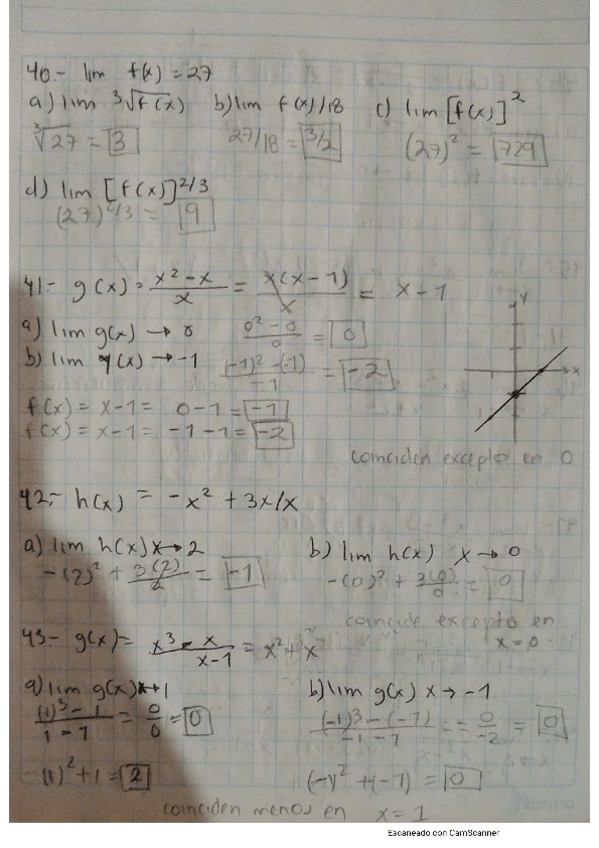 40.- lim f(x) = 27
a) lim ³√f(x) b) lim f(x)/18 c) lim [f(x)]²
³√27 = 3 27/18 = 3/2 (27)² = 729
d) lim [f(x)]^2/3
(27)^2/3 = 9
41.- g(x) = x² - x / x = x(x - 1) / x = x - 1
y
a) lim g(x) → 0 0² - 0 / 0 = 0
b) lim g(x) → -1 (-1)² - (-1) / -1 = -2
x
f(x) = x - 1 = 0 - 1 = -1
f(x) = x - 1 = -1 - 1 = -2
coinciden excepto en 0
42.- h(x) = -x² + 3x/x
a) lim h(x) x → 2 b) lim h(x) x → 0
-(2)² + 3(2) / 2 = -1 -(0)² + 3(0) / 0 = 0
coincide excepto en
x = 0
43.- g(x) = x³ - x / x - 1 = x² + x
a) lim g(x) x → 1 b) lim g(x) x → -1
(1)³ - 1 / 1 - 1 = 0 / 0 = 0 (-1)³ - (-1) / -1 - 1 = = 0 / -2 = 0
-(1)² + 1 = 2 (-1)² + (-1) = 0
coinciden menos en x = 1
Escaneado con CamScanner